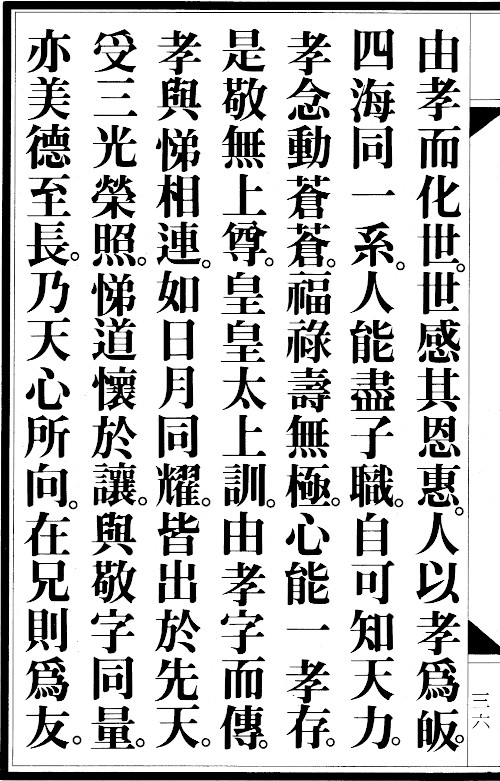 由孝而化世。世感其恩惠。人以孝爲皈。
四海同一系。人能盡子職。自可知天力。
孝念動蒼蒼。福祿壽無極。心能一孝存。
是敬無上尊。皇皇太上訓。由孝字而傳。
孝與悌相連。如日月同耀。皆出於先天。
受三光榮照。悌道懷於讓。與敬字同量。
亦美德至長。乃天心所向。在兄則爲友。
三六